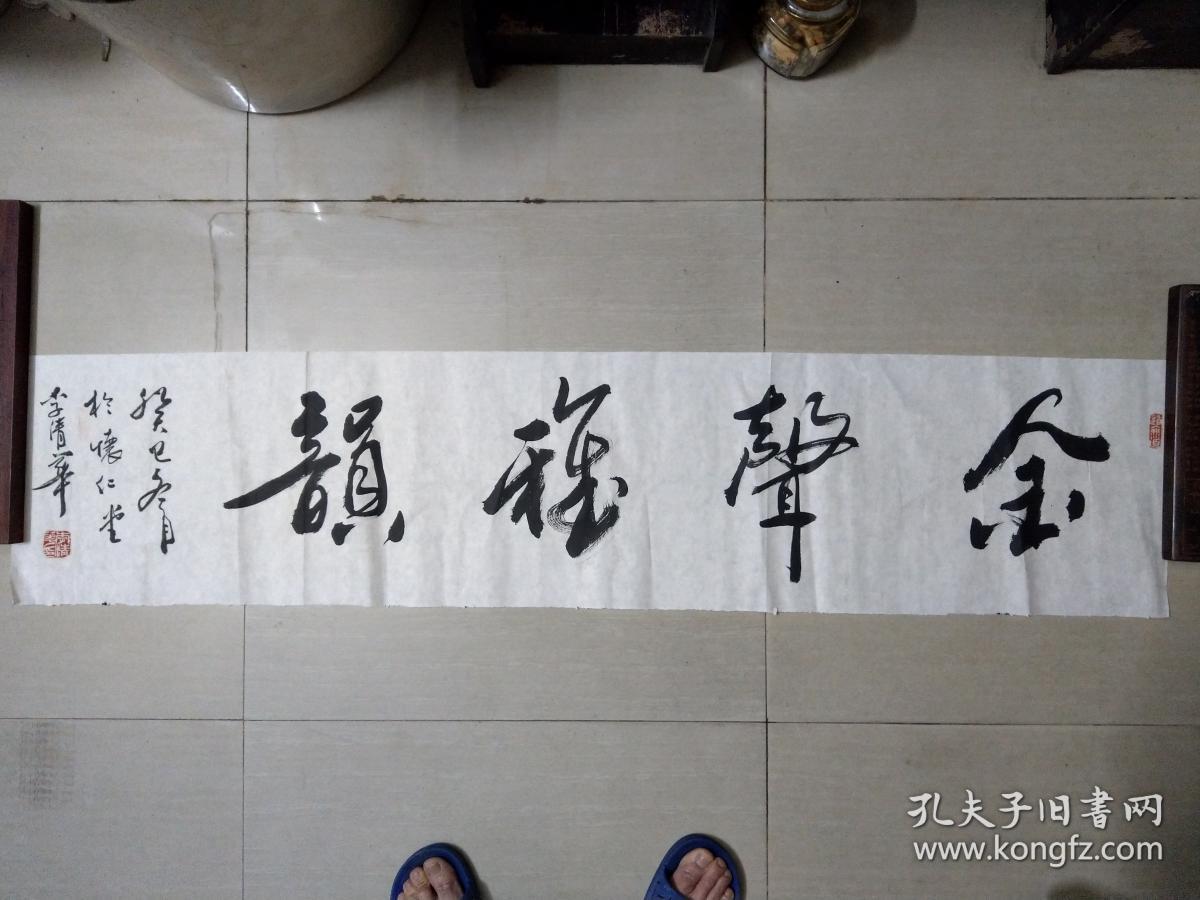 金聲雅韻
癸巳冬月
於懷仁堂
李清華
孔夫子旧书网
www.kongfz.com